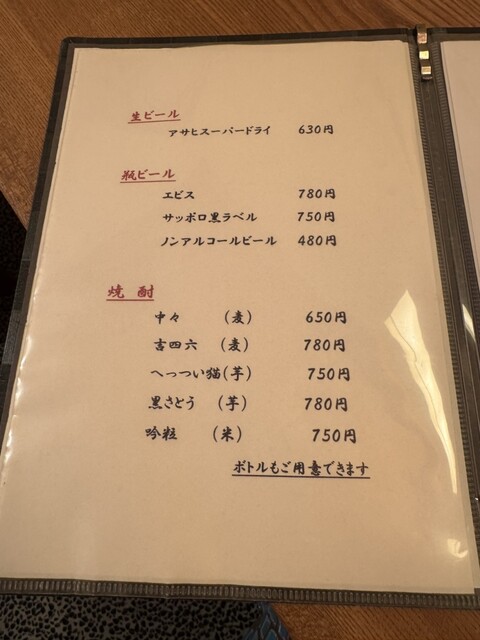 生ビール
アサヒスーパードライ 630円
瓶ビール
エビス 780円
サッポロ黒ラベル 750円
ノンアルコールビール 480円
焼 酎
中々 (麦) 650円
吉四六 (麦) 780円
へっつい猫(芋) 750円
黒さとう (芋) 780円
吟粒 (米) 750円
ボトルもご用意できます